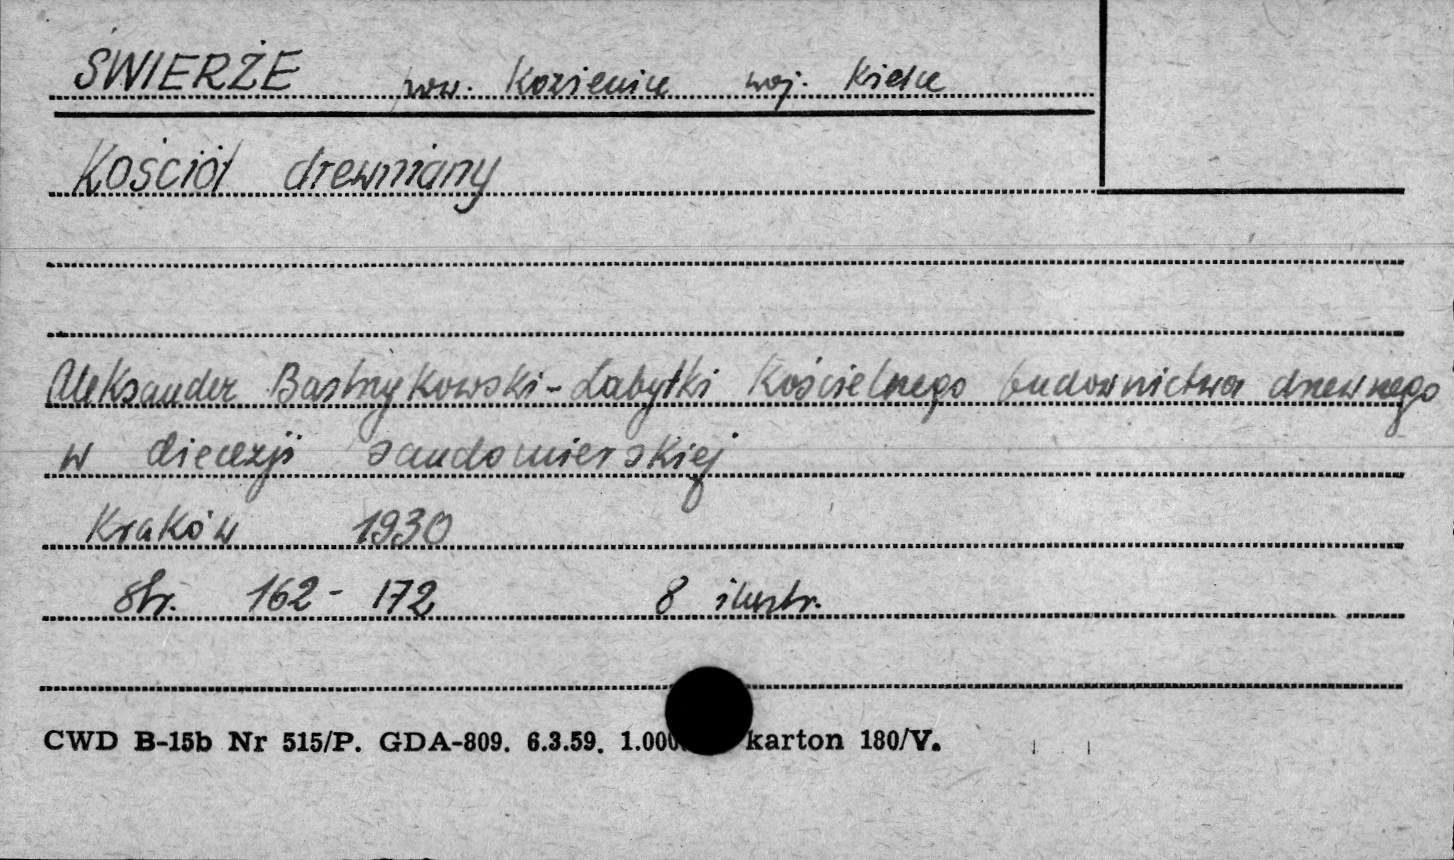 ŚWIERŻE pow. Kozienice woj. Kielce
Kościół drewniany
Aleksander Bastrzykowski - Zabytki Kościelnego budownictwa drzewnego
w diecezji sandomierskiej
Kraków 1930
str. 162 - 172 8 ilustr.
CWD B-15b Nr 515/P. GDA-809. 6.3.59. 1.000 karton 180/V.